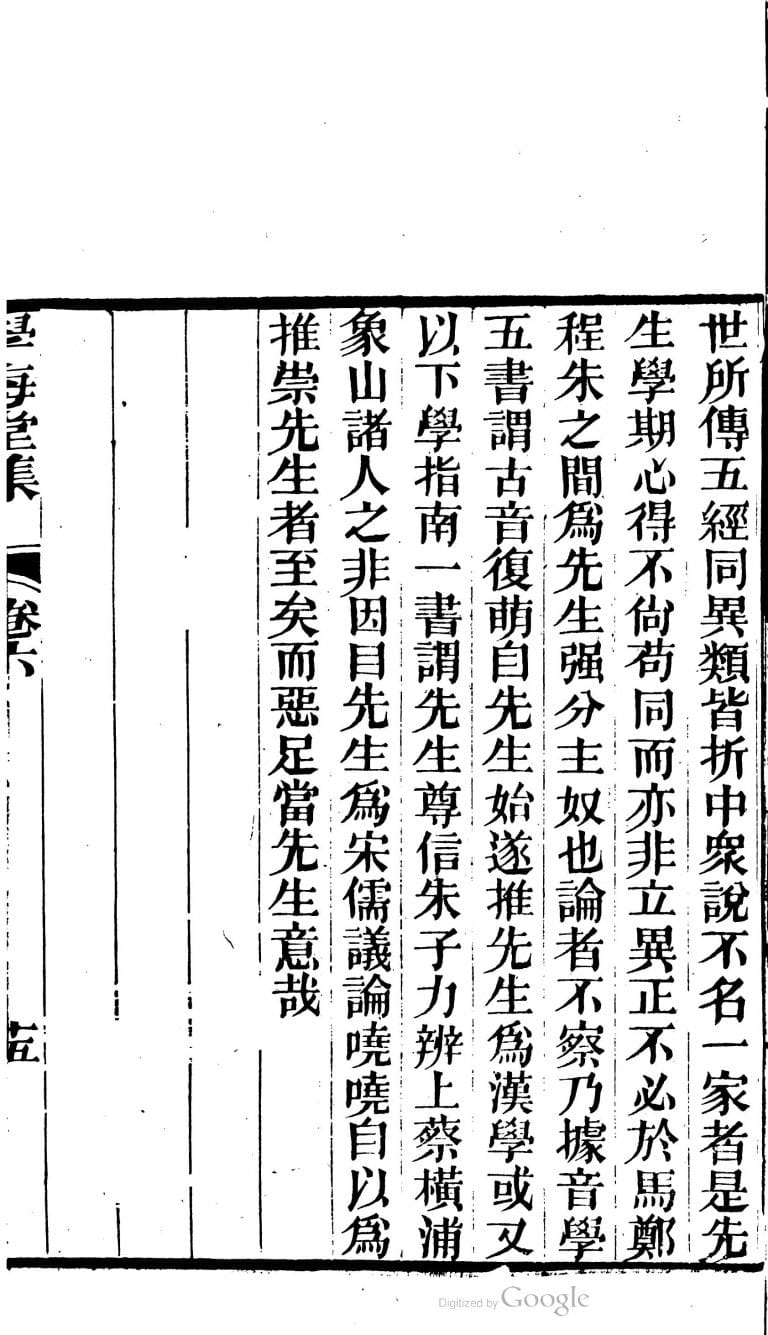 世所傳五經同異類皆折中衆說不名一家者是先
生學期心得不尙苟同而亦非立異正不必於馬鄭
程朱之間爲先生强分主奴也論者不察乃據音學
五書謂古音復萌自先生始遂推先生爲漢學或又
以下學指南一書謂先生尊信朱子力辨上蔡橫浦
象山諸人之非因目先生爲宋儒議論嘵嘵自以爲
推崇先生者至矣而惡足當先生意哉
學海堂集
卷六
十五
Digitized by Google